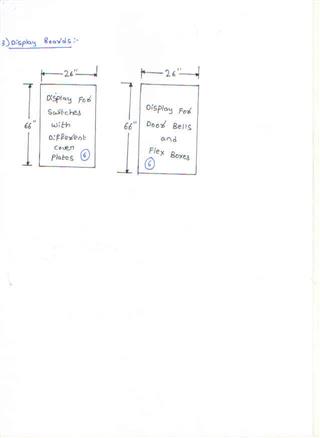 3) Display Boards:-
26"
26"
66"
Display For
Switches
with
Different
Cover
Plates 6
66"
Display For
Door Bells
and
Flex Boxes
6